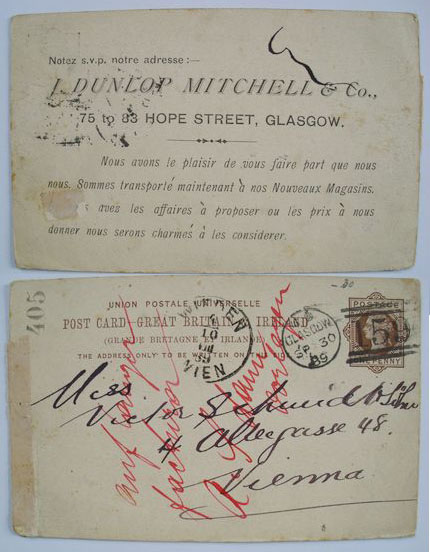 Notez s.v.p. notre adresse :—
J. DUNLOP MITCHELL & Co.,
75 to 83 HOPE STREET, GLASGOW.
Nous avons le plaisir de vous faire part que nous
nous. Sommes transporté maintenant à nos Nouveaux Magasins.
avez les affaires à proposer ou les prix à nous
donner nous serons charmés à les considerer.
405
UNION POSTALE UNIVERSELLE
POST CARD—GREAT BRITAIN IRELAND
(GRANDE BRETAGNE ET IRLANDE)
THE ADDRESS ONLY TO BE WRITTEN ON THIS
WIEN
WIEN
GLASGOW
30
89
POSTAGE
PENNY
Mess
Victor Schmid &
4 Alleegasse 48
Vienna